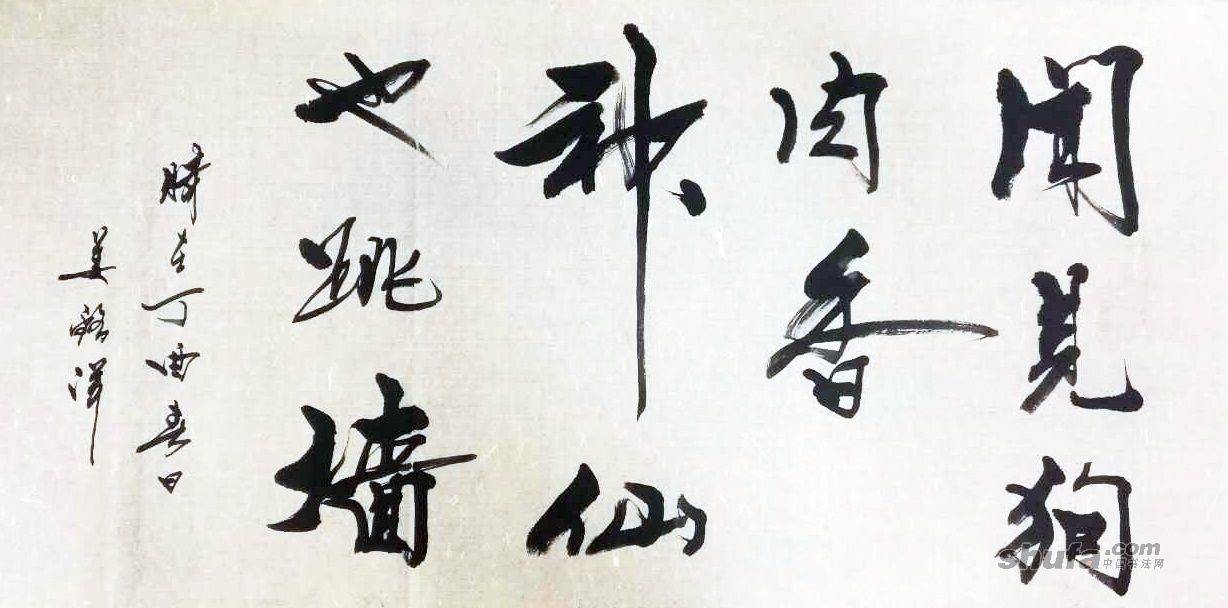 聞見狗
肉香
神仙
也跳墻
時在丁酉春日
姜洋
shufa.com
中国书法网